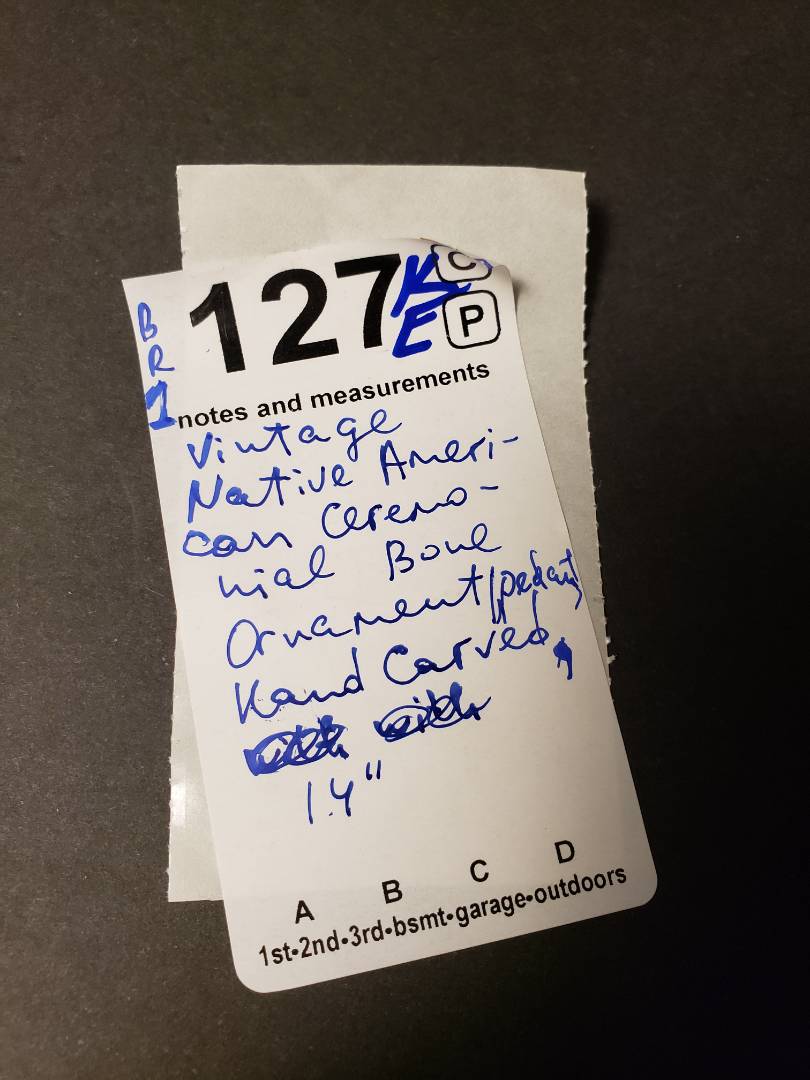 127 K C
E P
B
R
1
notes and measurements
Vintage
Native Ameri-
can Ceremo-
nial Bone
Ornament/pedant
Hand Carved,
1.4"
A B C D
1st•2nd•3rd•bsmt•garage•outdoors